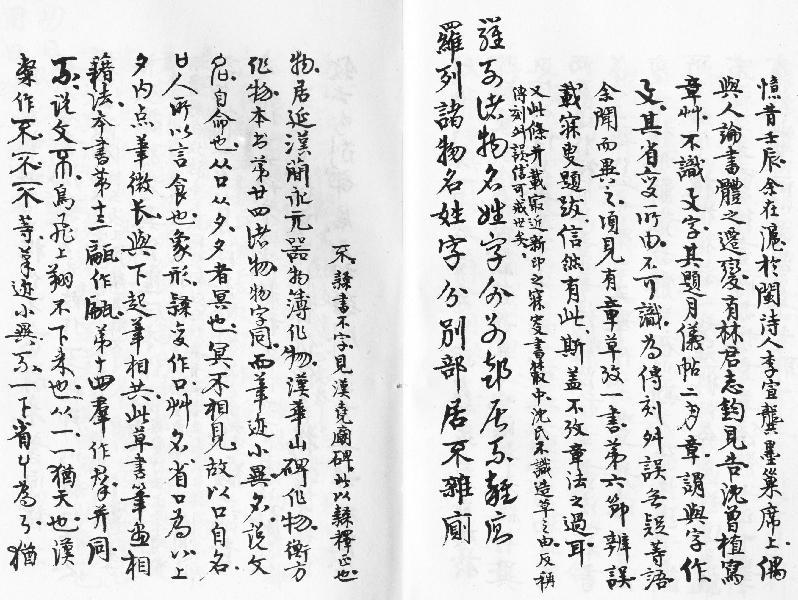 憶昔壬辰余在滬於閩詩人李宣龔墨巢席上偶
與人論書體之遷變有林君志鈞見告沈曾植寫
章艸不識文字其題月儀帖二為章謂與字作
文其省變所由不可識為傳刻舛誤無疑等語
余聞而異之頃見有章草攷一書第六節辨誤
載寐叟題跋信然有此斯蓋不攷章法之過耳
又此條并載最近新印之寐叟書叢中沈氏不識造草之由反稱
傳刻舛誤信可戒世矣
羅列諸物名姓字分別部居不雜廁
羅列諸物名姓字分別部居不雜廁
不隸書不字見漢堯廟碑此以隸釋正也
物居延漢簡永元器物簿作物漢華山碑作物衡方
作物本書第廿四諸物物字同而筆迹小異名說文
名自命也从口从夕夕者冥也冥不相見故以口自名
口人所以言食也象形隸變作口艸名省口為以上
夕內点筆微長與下起筆相共此草書筆畫相
籍法本書第十三甗作甗第十四羣作群并同
不說文不鳥飛上翔不下來也从一一猶天也漢
隸作不不不等筆迹小異不一下省丩為了猶